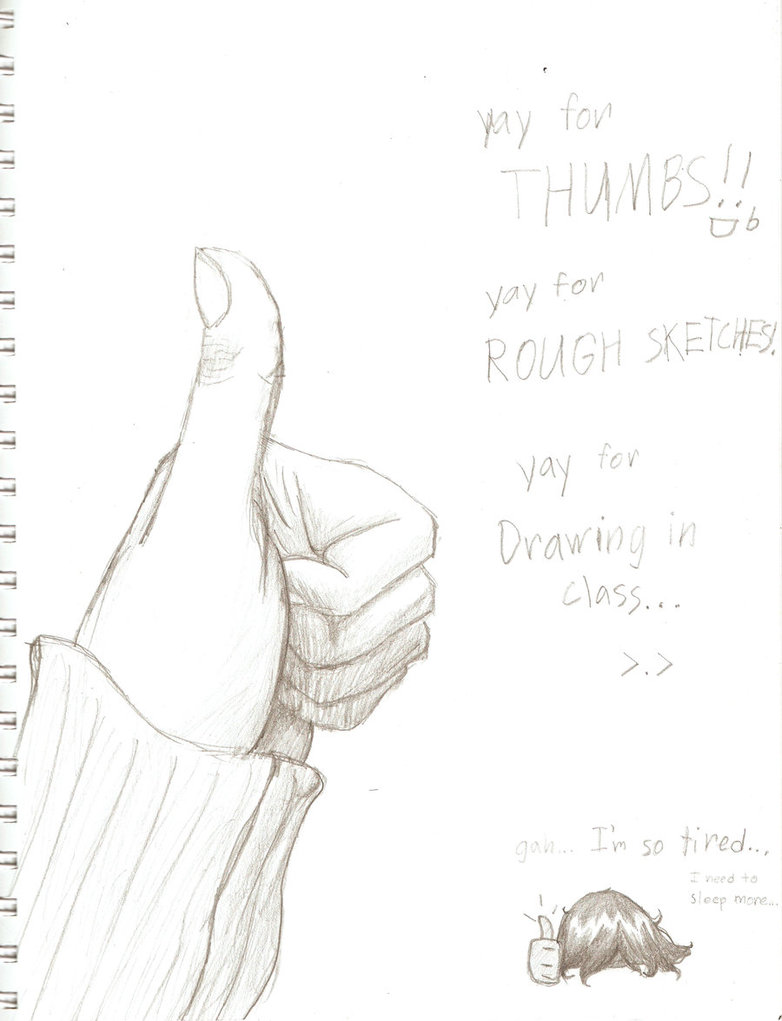 yay for
THUMBS!!
:Db
yay for
ROUGH SKETCHES!
yay for
Drawing in
class...
>.>
gah... I'm so tired...
I need to
sleep more...